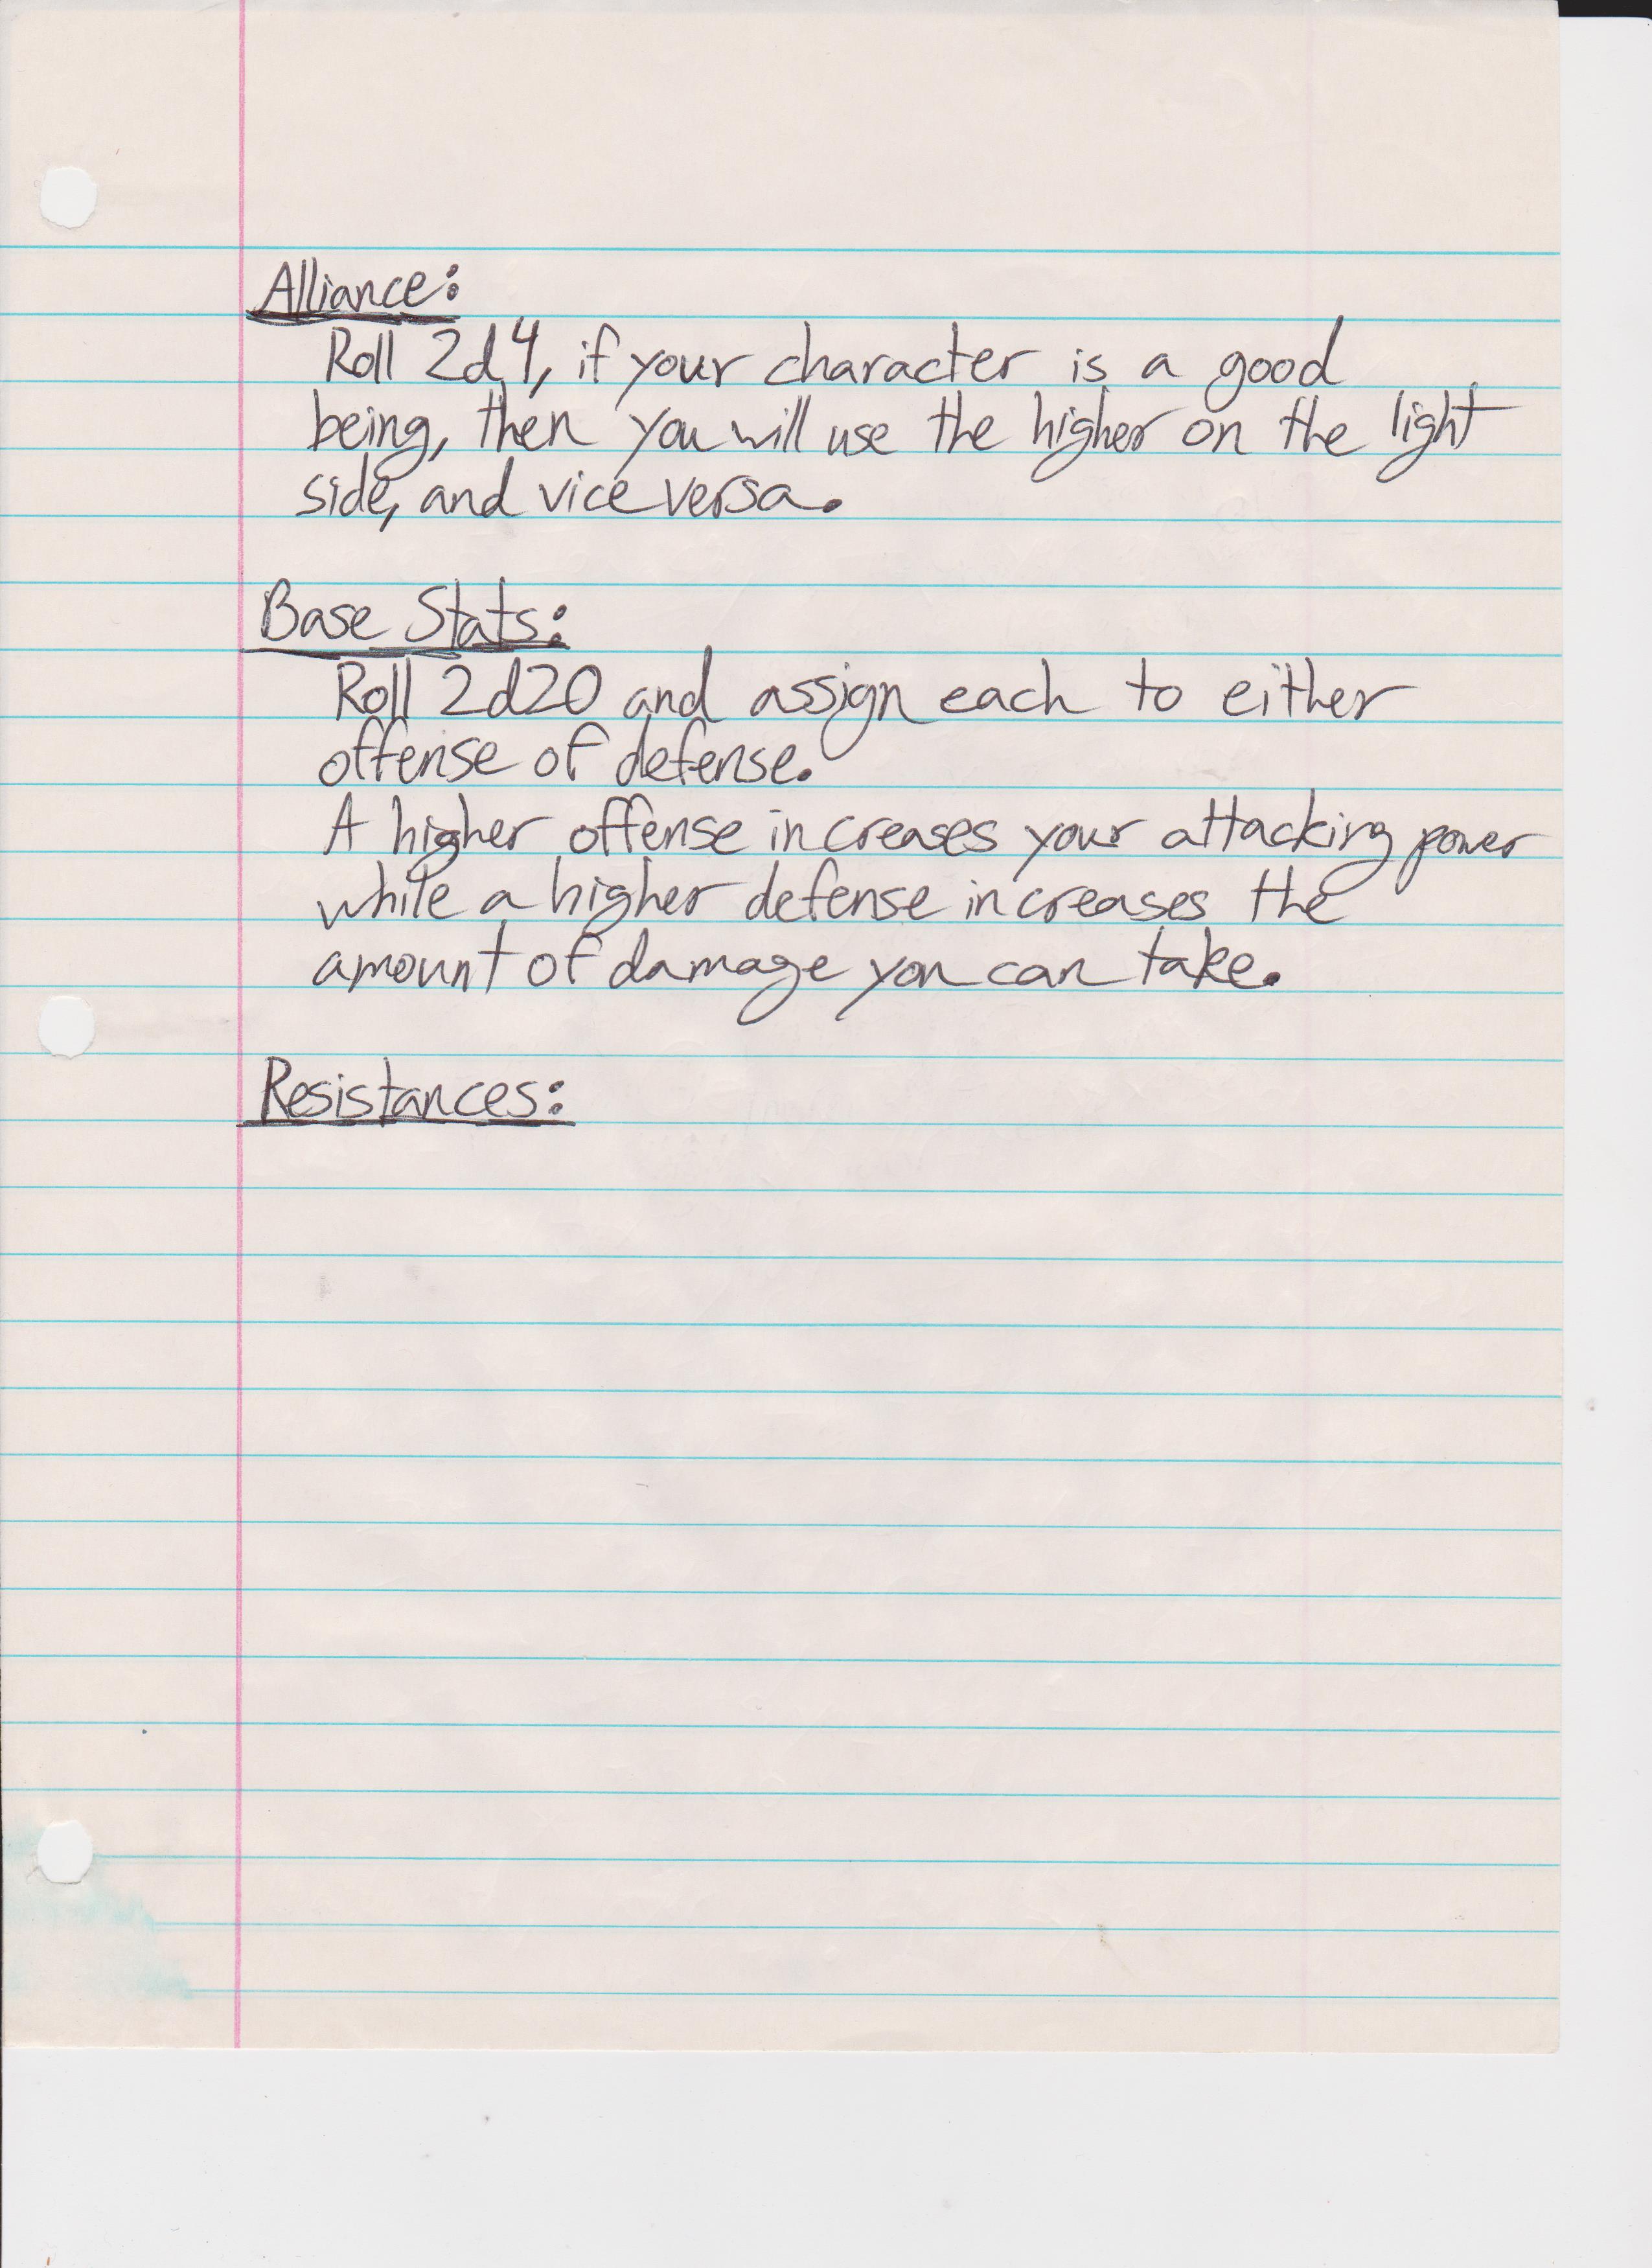 Alliance:
Roll 2d4, if your character is a good
being, then you will use the higher on the light
side, and vice versa.
Base Stats:
Roll 2d20 and assign each to either
offense of defense.
A higher offense increases your attacking power
while a higher defense increases the
amount of damage you can take.
Resistances: